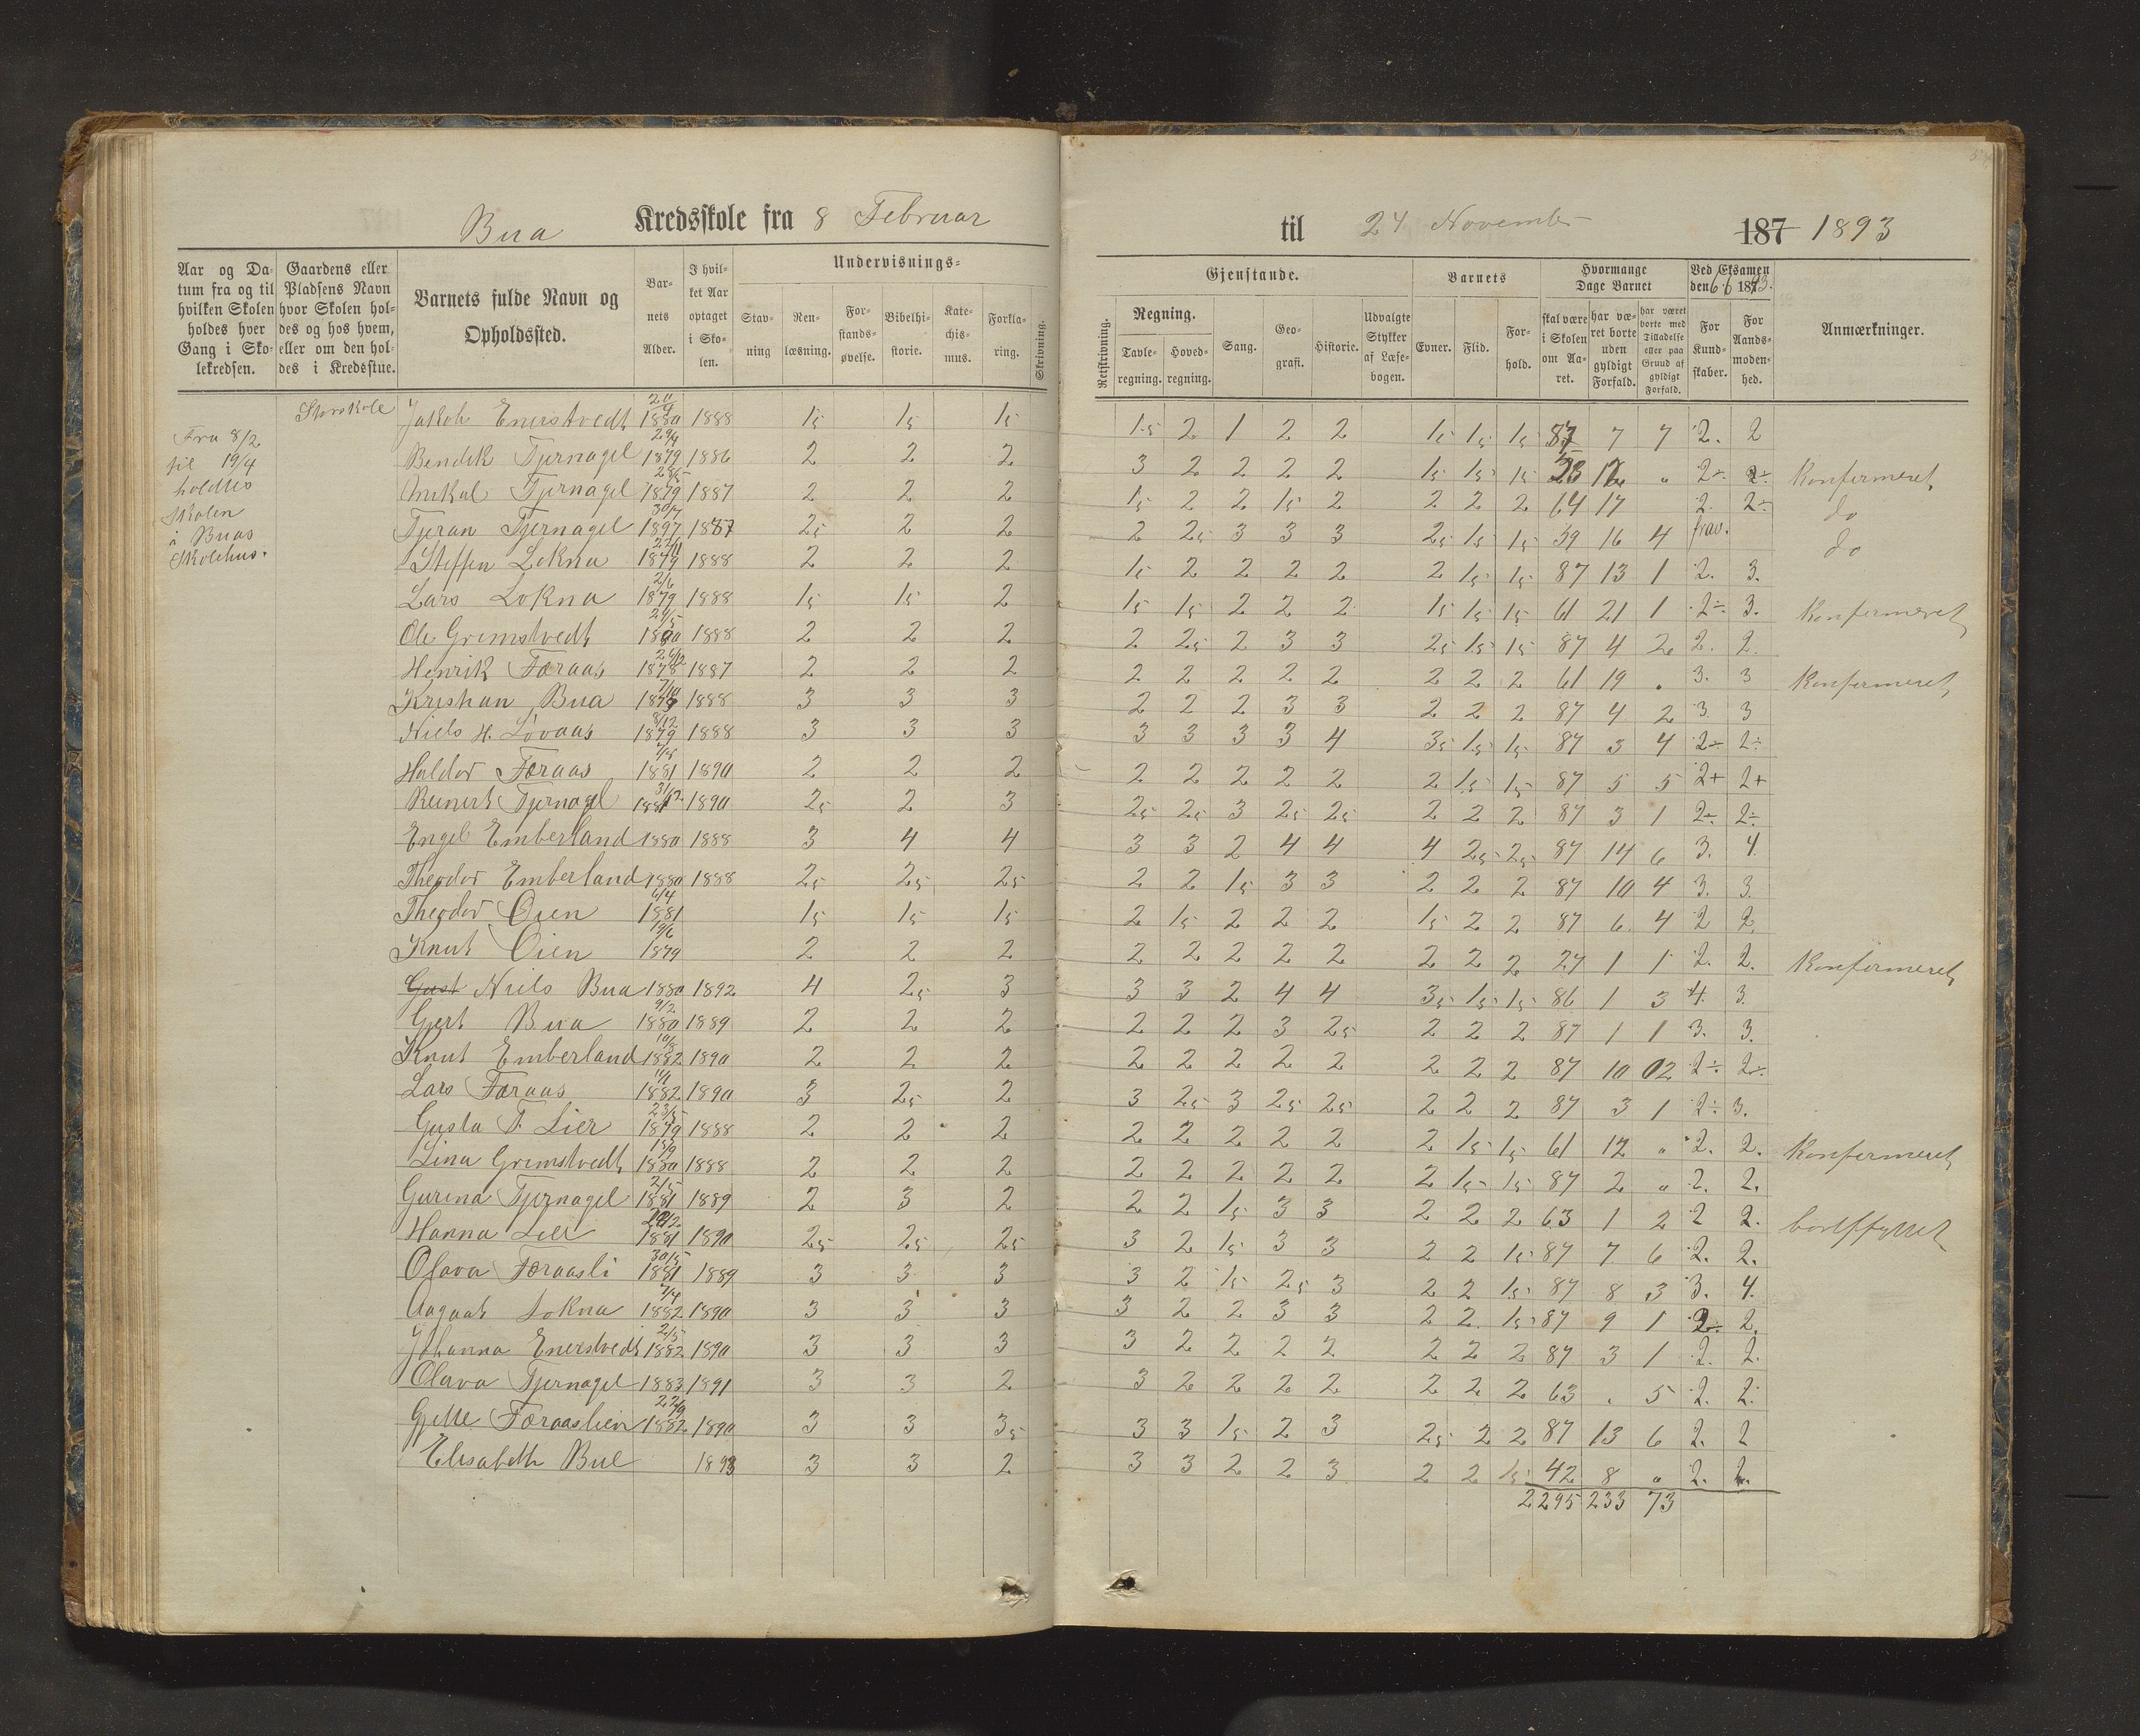 Bua Kredsskole fra 8 Februar til 24 November 187 1893
Aar og Datum fra og til hvilken Skolen holdes hver Gang i Skolekredsen.
Gaardens eller Pladsens Navn hvor Skolen holdes og hos hvem, eller om den holdes i Kredsstue.
Barnets fulde Navn og Opholdssted.
Barnets Alder.
I hvilket Aar optaget i Skolen.
Undervisnings=
Stavning
Renlæsning.
Forstandsøvelse.
Bibelhistorie.
Katechismus.
Forklaring.
Skrivning.
Gjenstande.
Retskrivning.
Regning.
Tavleregning.
Hovedregning.
Sang.
Geografi.
Historie.
Udvalgte Stykker af Læsebogen.
Barnets
Evner.
Flid.
Forhold.
Hvormange Dage Barnet
skal være i Skolen om Aaret.
har været borte uden gyldigt Forfald.
har været borte med Tilladelse eller paa Grund af gyldigt Forfald.
Ved Eksamen den 6/6 1893.
For Kundskaber.
For Aandsmodenhed.
Anmærkninger.
Storskole
Fra 8/2
til 19/4
holdtes
skolen
i Buas
Skolehus.
Jakob Enerstvedt 20/9 1880 1888 15 15 15 15 2 1 2 2 15 15 15 87 7 7 2. 2
Bendik Tjernagel 29/4 1879 1886 2 2 2 3 2 2 2 2 15 15 15 " 2÷ 2÷ Konfermeret
Tjernagel 28/5 1879 1887 2 2 2 15 2 2 15 2 2 2 2 64 17 2. 2÷ do
Tjeran Tjernagel 30/7 1897 1887 25 2 2 2 25 3 3 3 25 15 15 39 16 4 frav. do
Steffen Lokna 22/11 1879 1888 2 2 2 15 2 2 2 2 2 15 15 87 13 1 2. 3.
Lars Lokna 2/6 1879 1888 15 15 2 15 15 2 2 2 15 15 15 61 21 1 2÷ 3. Konfermeret
Ole Grimstvedt 24/5 1880 1888 2 2 2 2 25 2 3 3 25 15 15 87 4 2 2. 2.
Henrik Færaas 26/12 1878 1887 2 2 2 2 2 2 2 2 2 2 2 61 19 " 3. 3 Konfermeret
Kristian Bua 7/10 1879 1888 3 3 3 2 2 2 3 3 2 2 2 87 4 2 3 3
Niels H. Lòvaas 8/12 1879 1888 3 3 3 3 3 3 3 4 35 15 15 87 3 4 2÷ 2÷
Haldor Færaas 1881 1890 2 2 2 2 2 2 2 2 2 15 15 87 5 5 2+ 2+
Reinert Tjernagel 31/12 1881 1890 25 2 3 25 25 3 25 25 2 2 2 87 3 1 2÷ 2÷
Engel Emberland 1880 1888 3 4 4 3 3 2 4 4 4 25 25 87 14 6 3. 4
Theodor Emberland 1880 1888 25 25 25 2 2 15 3 3 2 2 2 87 10 4 3. 3.
Theodor Òien 6/4 1881 15 15 15 2 15 2 2 2 15 2 2 87 6 4 2 2
Knut Òien 19/6 1879 2 2 2 2 2 2 2 2 2 2 2 27 1 1 2. 2. Konfermeret
Gust Niels Bua 1880 1892 4 25 3 3 3 2 4 4 35 15 15 86 1 3 4. 3.
Gjert Bua 9/2 1880 1889 2 2 2 2 2 2 3 25 2 2 2 87 1 1 3. 3.
Knut Emberland 10/8 1882 1890 2 2 2 2 2 2 2 2 2 2 2 87 10 02 2÷ 2÷
Lars Færaas 1882 1890 3 25 2 3 25 3 25 25 2 2 2 87 3 1 2÷ 3.
Gusta T. Lier 23/5 1879 1888 2 2 2 2 2 2 2 2 2 15 15 61 12 " 2. 2. Konfermeret
Lina Grimstvedt 15/9 1880 1888 2 2 2 2 2 2 2 2 2 15 15 87 2 " 2. 2.
Gurina Tjernagel 2/5 1881 1889 2 3 2 2 2 15 3 3 2 2 2 63 1 2 2 2. bortflyttet
Hanna Lier 1881 1890 25 25 25 3 2 15 3 3 2 2 15 87 7 6 2. 2.
Olava Færaasli 30/5 1881 1889 3 3 3 3 2 15 25 3 2 2 15 87 8 3 3. 4.
Aagaat Lokna 7/4 1882 1890 3 3 3 3 2 2 3 3 2 2 15 87 9 1 2÷ 2.
Johanna Enerstvedt 2/5 1882 1890 3 3 3 3 2 2 2 2 2 2 2 87 3 1 2. 2.
Olava Tjernagel 1883 1891 3 3 2 3 2 2 2 2 2 2 2 63 " 5 2. 2.
Gjelle Færaaslien 22/9 1882 1890 3 3 35 3 3 15 2 3 25 2 2 87 13 6 2. 2
Elisabeth Bue 1893 3 3 2 3 3 2 2 3 2 2 15 42 8 " 2. 2.
2295 233 73